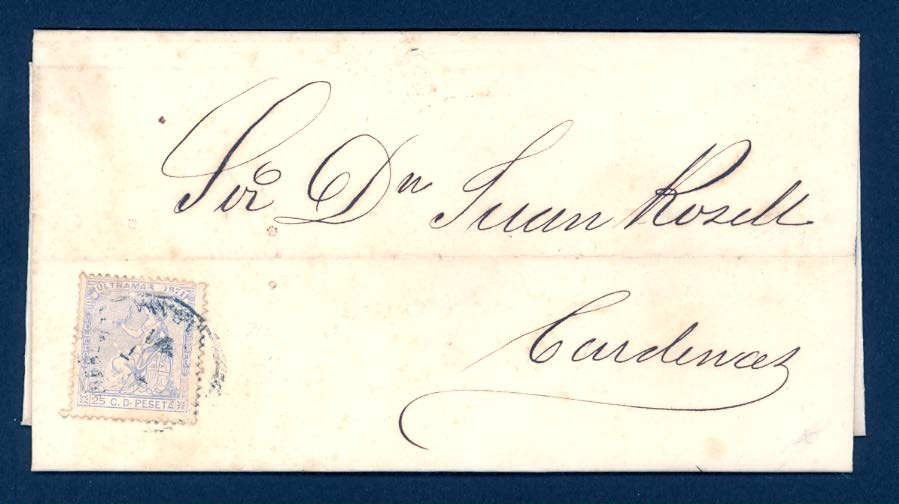 Sor Dn Juan Rosell
Cardenas
ULTRAMAR 1871
25 C. D. PESETA